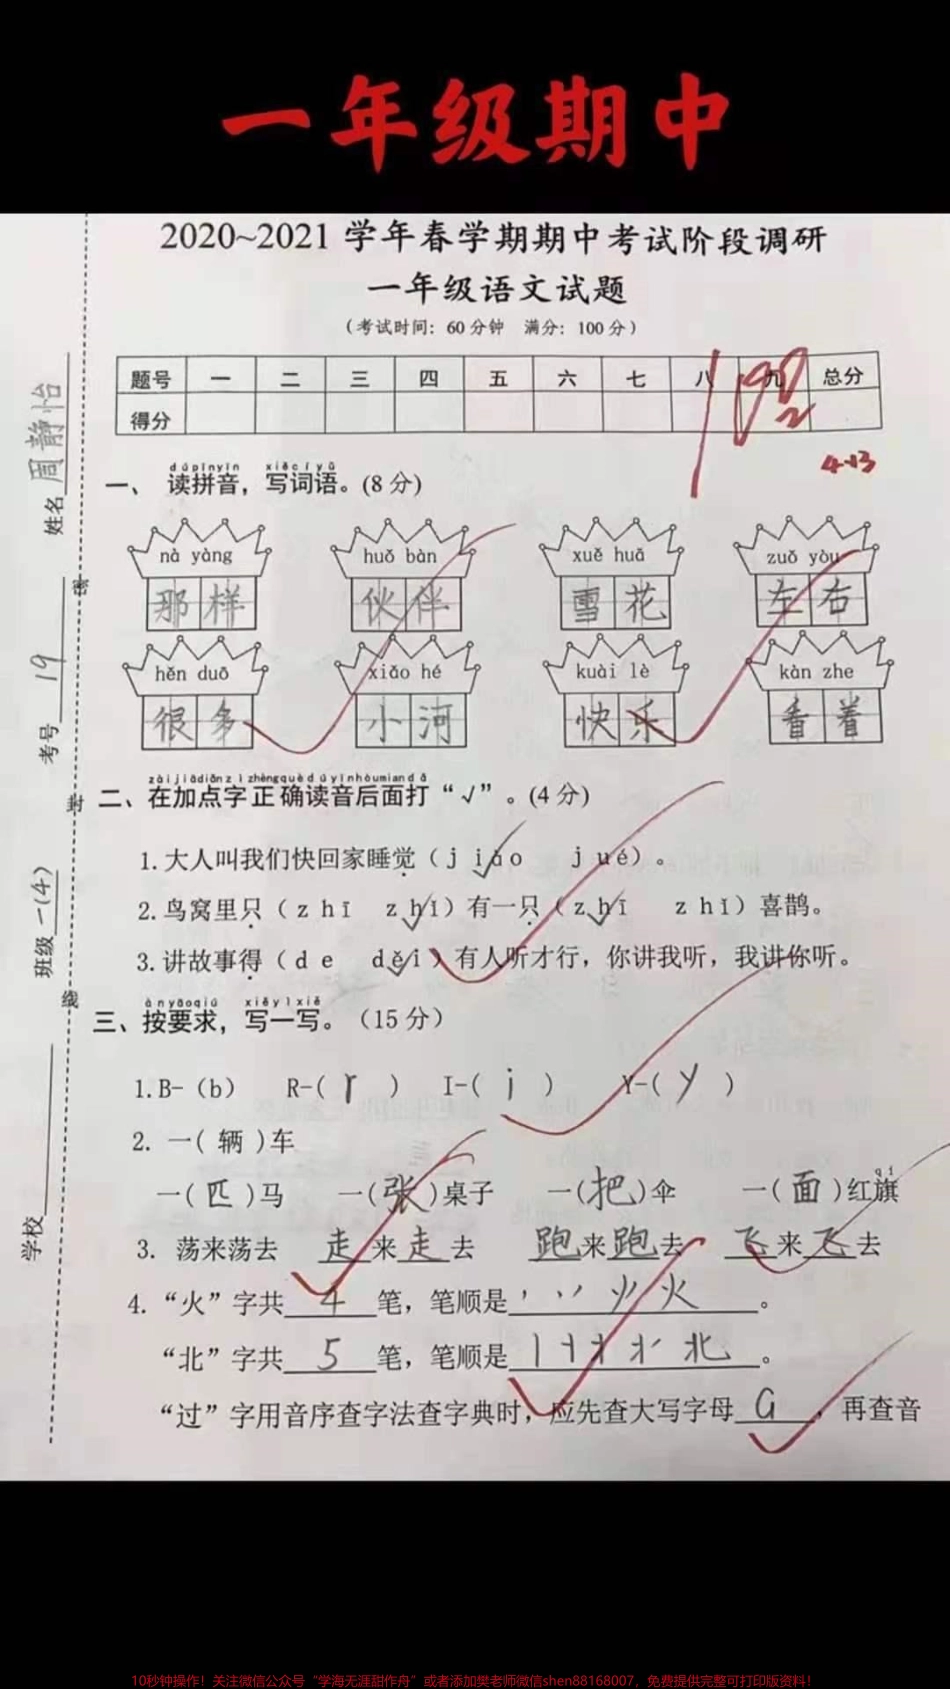 一年级期中
2020~2021 学年春学期期中考试阶段调研
一年级语文试题
（考试时间：60分钟 满分：100分）
题号 一 二 三 四 五 六 七 八 九 总分
得分
4.13
姓名 周静怡
考号 19
班级 一(4)
学校
密
封
线
dú pīn yīn xiě cí yǔ
一、 读拼音，写词语。(8分)
nà yàng huǒ bàn xuě huā zuǒ yòu
那样 伙伴 雪花 左右
hěn duō xiǎo hé kuài lè kàn zhe
很多 小河 快乐 看着
zài jiā diǎn zì zhèng què dú yīn hòu miàn dǎ
二、在加点字正确读音后面打“√”。(4分)
1.大人叫我们快回家睡觉（jiào jué）。
2.鸟窝里只（zhī zhǐ）有一只（zhī zhǐ）喜鹊。
3.讲故事得（de děi）有人听才行，你讲我听，我讲你听。
àn yāo qiú xiě yì xiě
三、按要求，写一写。（15分）
1.B-（b） R-( r ) I-( i ) Y-( y )
2. 一( 辆 )车
一(匹)马 一(张)桌子 一(把)伞 一(面)红旗
qí
3. 荡来荡去 走来走去 跑来跑去 飞来飞去
4.“火”字共 4 笔，笔顺是 丶 丷 火 火 。
“北”字共 5 笔，笔顺是 北 。
“过”字用音序查字法查字典时，应先查大写字母 G ，再查音
10秒钟操作！关注微信公众号“学海无涯甜作舟”或者添加樊老师微信shen88168007，免费提供完整可打印版资料！